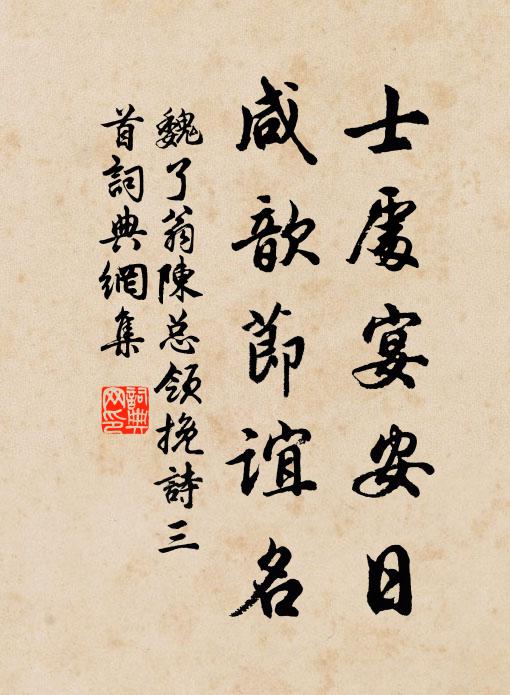 士處宴安日
咸歆節誼名
魏了翁陳总領挽詩三
首詞典網集
詞典
网印